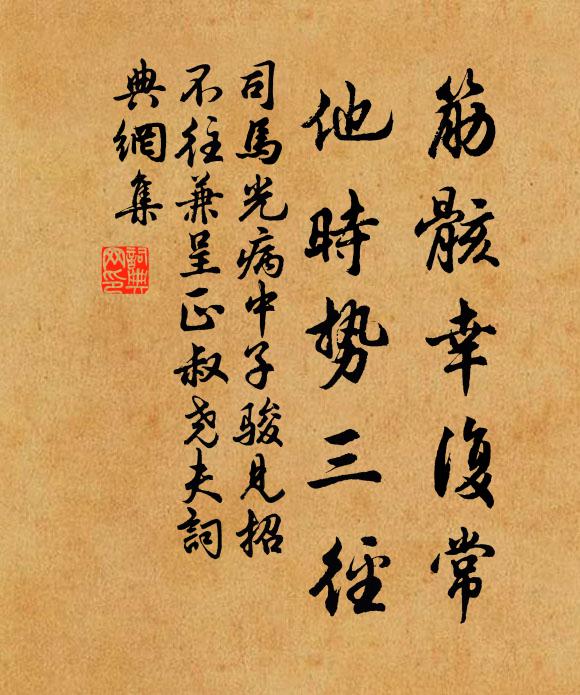 筋骸幸復常
他時势三径
司馬光病中子駿見招
不往兼呈正叔尧夫詞
典網集
詞典網印